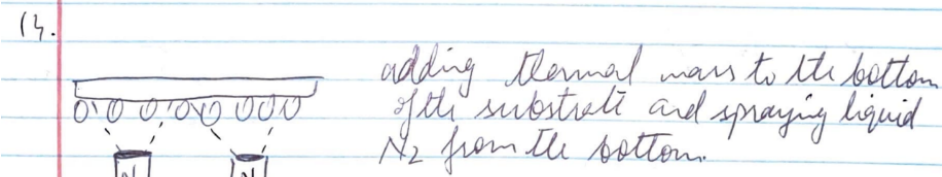 14.
adding thermal mass to the bottom
of the substrate and spraying liquid
N2 from the bottom.
N N